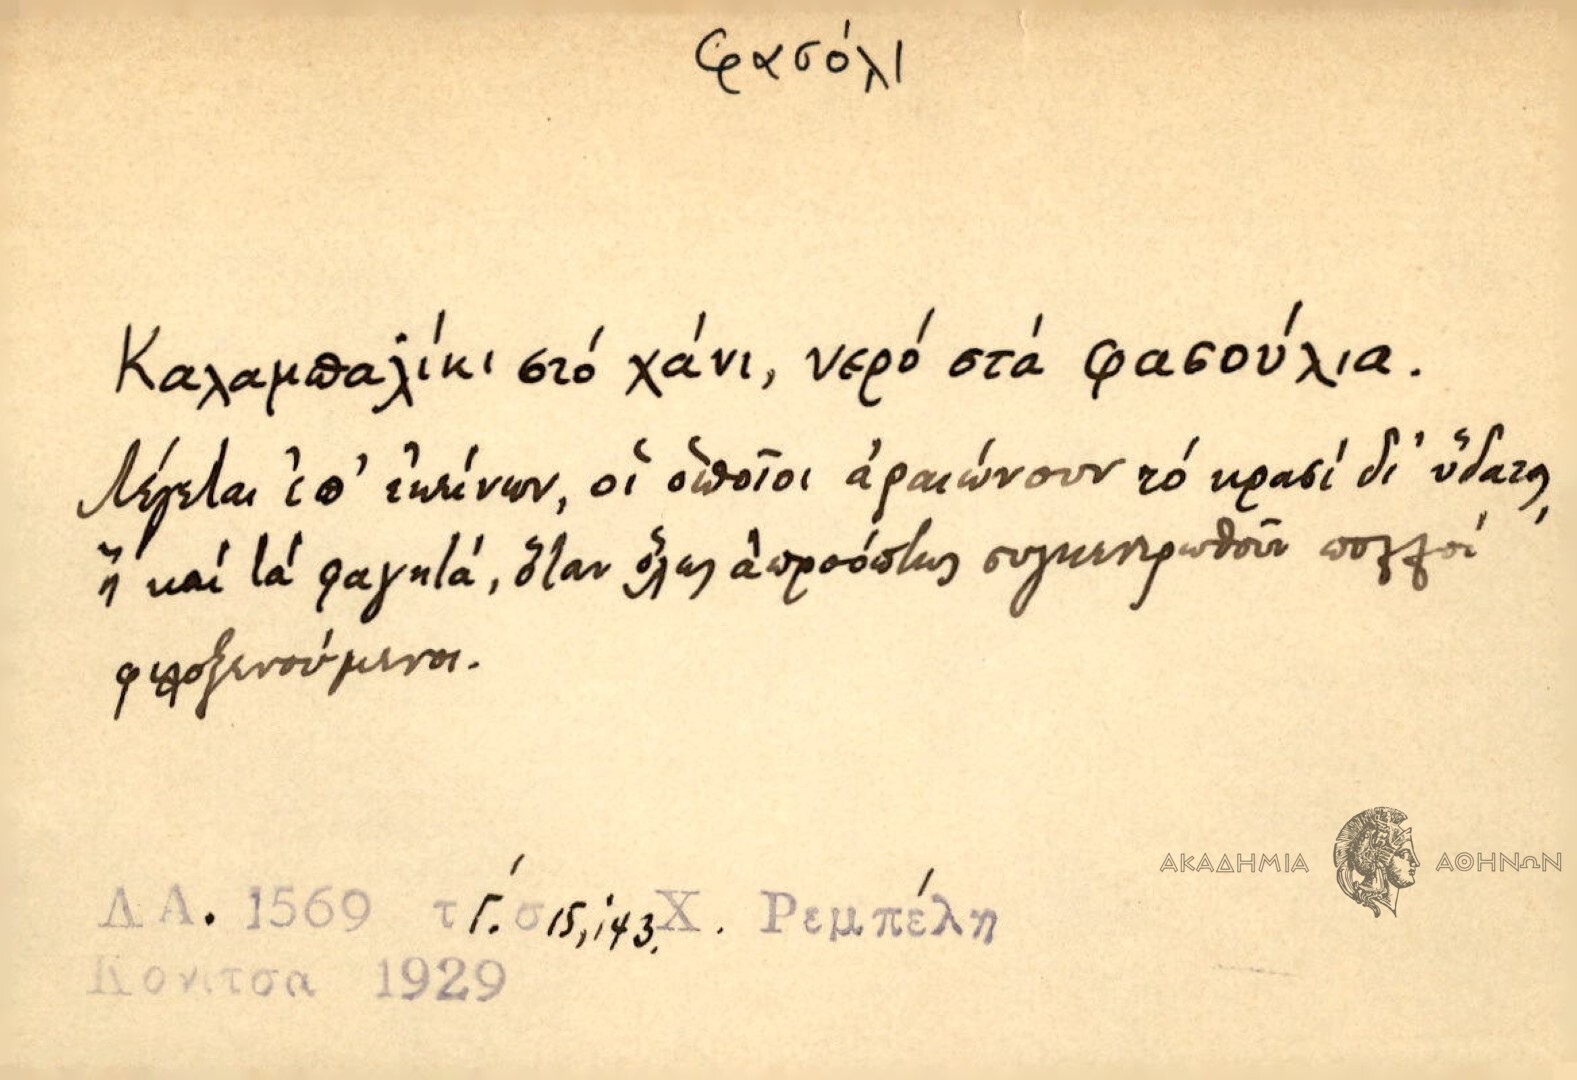 φασόλι
Καλαμπαλίκι στό χάνι, νερό στά φασούλια.
Λέγεται ἐπ' ἐκείνων, οἱ ὁποῖοι ἀραιώνουν τό κρασί δι' ὕδατος,
ἤ καί τά φαγητά, ὅταν ὅλως ἀπροόπτως συγκεντρωθοῦν πολλοί
φιλοξενούμενοι.
ΑΚΑΔΗΜΙΑ ΑΘΗΝΩΝ
Λ Α. 1569 τ Γ΄. σ 15, 143. Χ. Ρεμπέλη
Κονιτσα 1929